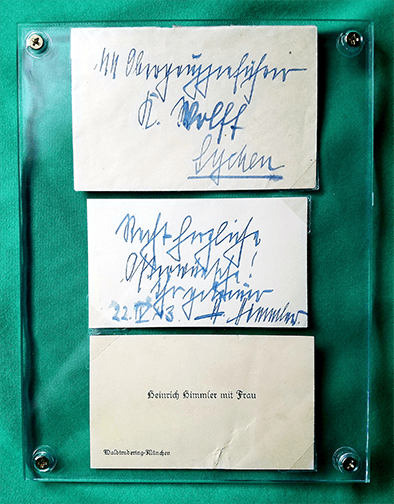 SS Obergruppenführer
K. Wolff
Lychen
Recht herzliche
Osterwünsche!
Ihr getreuer
22.IV 43 H. Himmler.
Heinrich Himmler mit Frau
Waldtrudering-München